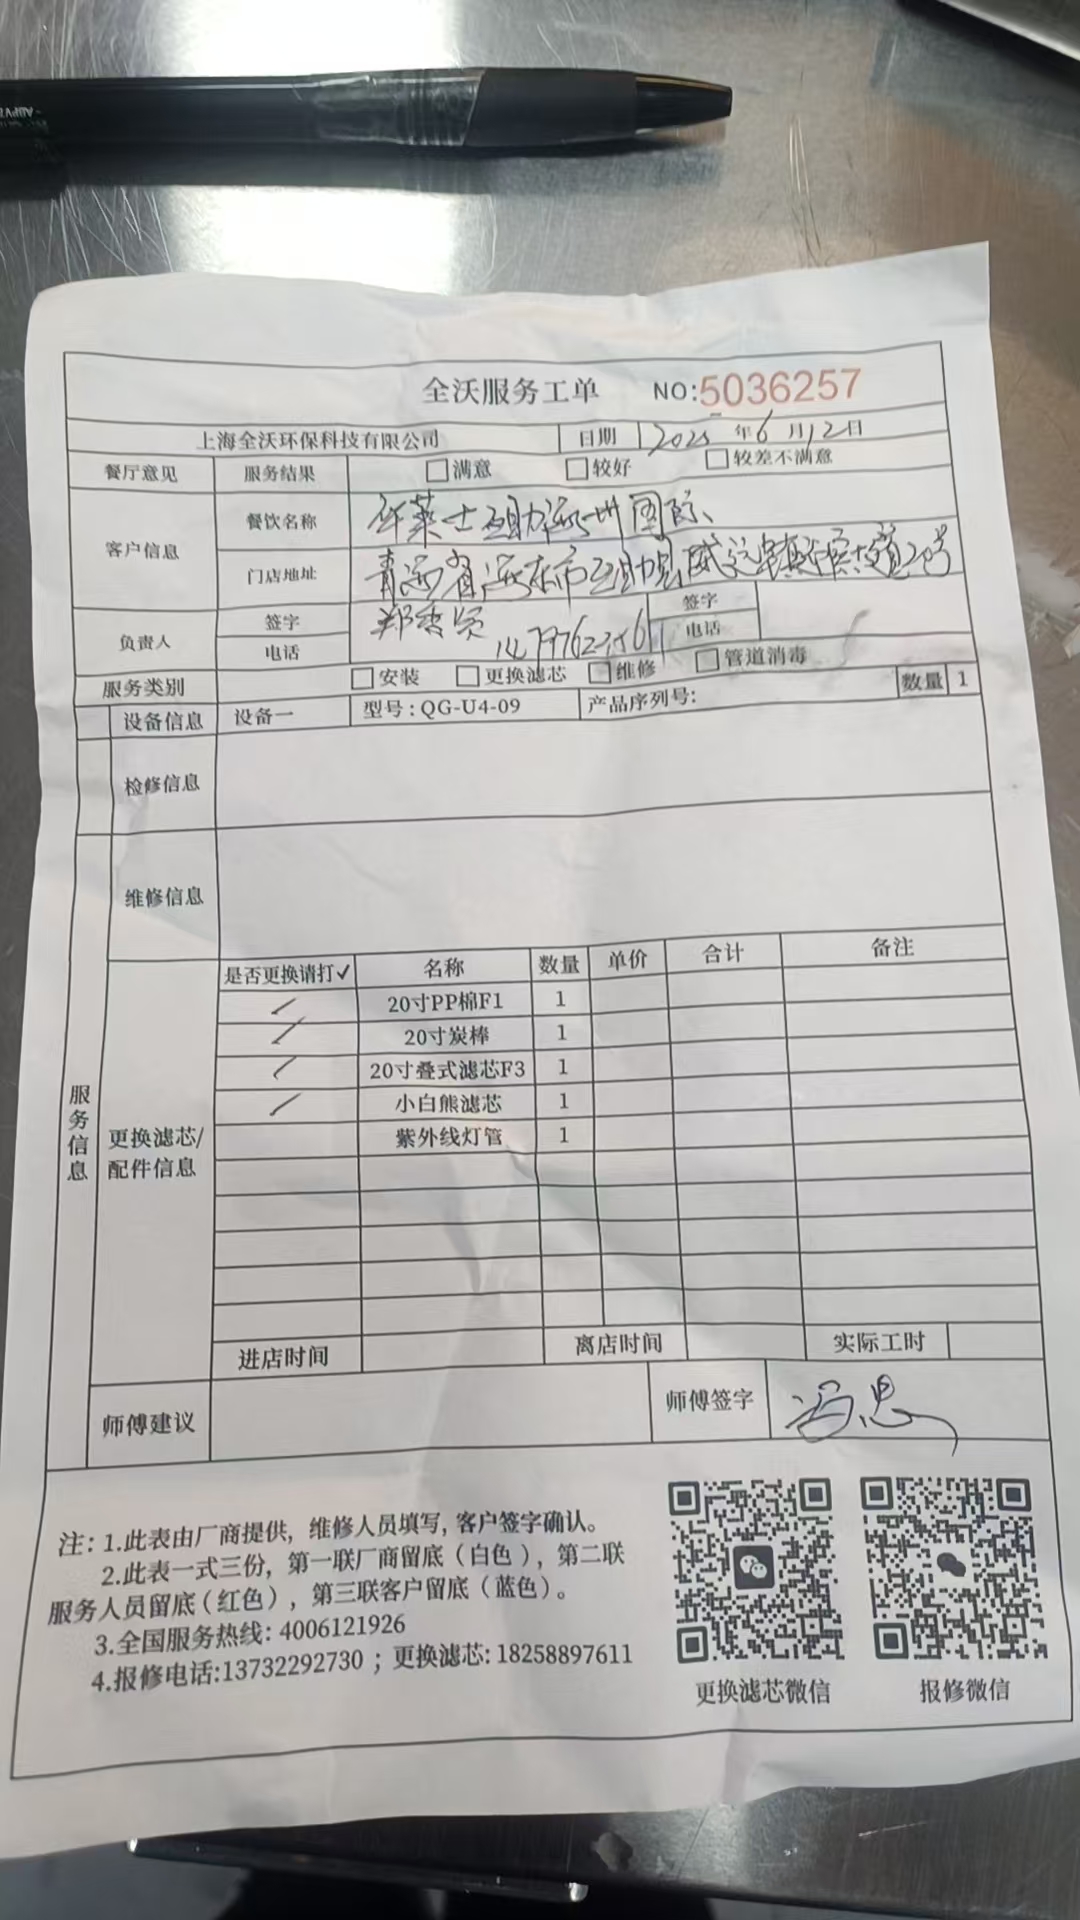 全沃服务工单 NO:5036257
上海全沃环保科技有限公司 日期 2025年6月12日
餐厅意见 服务结果 □满意 □较好 □较差不满意
客户信息 餐饮名称 华莱士互助 国际
门店地址 青海省海东市互助县威远镇 大道20号
负责人 签字 郑 签字
电话 电话
服务类别 □安装 □更换滤芯 □维修 □管道消毒
设备信息 设备一 型号:QG-U4-09 产品序列号: 数量 1
检修信息
维修信息
服务信息
更换滤芯/配件信息
是否更换请打✓ 名称 数量 单价 合计 备注
/ 20寸PP棉F1 1
/ 20寸炭棒 1
/ 20寸叠式滤芯F3 1
/ 小白熊滤芯 1
紫外线灯管 1
进店时间 离店时间 实际工时
师傅建议 师傅签字 冯思
注:1.此表由厂商提供,维修人员填写,客户签字确认。
2.此表一式三份,第一联厂商留底(白色),第二联
服务人员留底(红色),第三联客户留底(蓝色)。
3.全国服务热线:4006121926
4.报修电话:13732292730;更换滤芯:18258897611
更换滤芯微信 报修微信